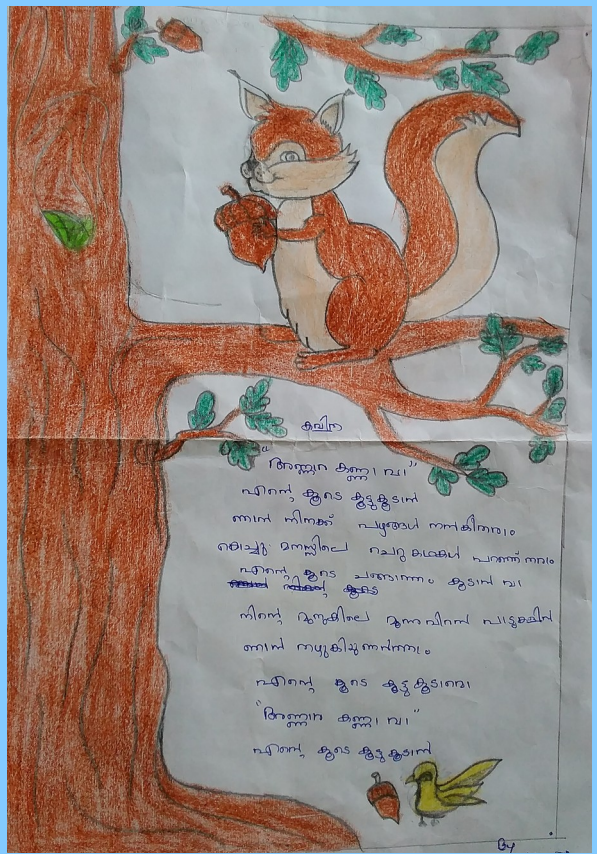 കവിത
"അണ്ണാറ കണ്ണാ വാ"
എന്റെ കൂടെ കൂട്ടുകൂടാൻ
ഞാൻ നിനക്ക് പഴങ്ങൾ നൽകിതരാം
കൊച്ചു മനസ്സിലെ ചെറു കഥകൾ പറഞ്ഞ് തരാം
എന്റെ കൂടെ ചങ്ങാത്തം കൂടാൻ വാ
നിന്റെ മുതുകിലെ മൂന്നു വിരൽ പാടുകളിൽ
ഞാൻ തഴുകിയുണർത്താം
എന്റെ കൂടെ കൂട്ടു കൂടാവൊ
"അണ്ണാറ കണ്ണാ വാ"
എന്റെ കൂടെ കൂട്ടുകൂടാൻ
By